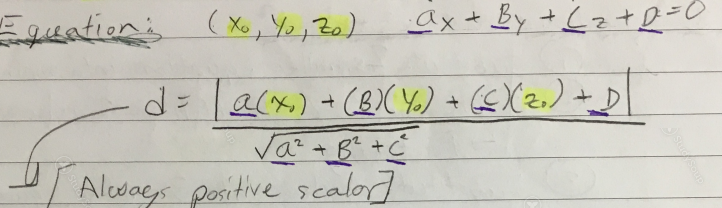 Equation: (x₀, y₀, z₀) ax + By + Cz + D = 0
d = |a(x₀) + (B)(y₀) + (C)(z₀) + D|
√a² + B² + c²
[Always positive scalor]